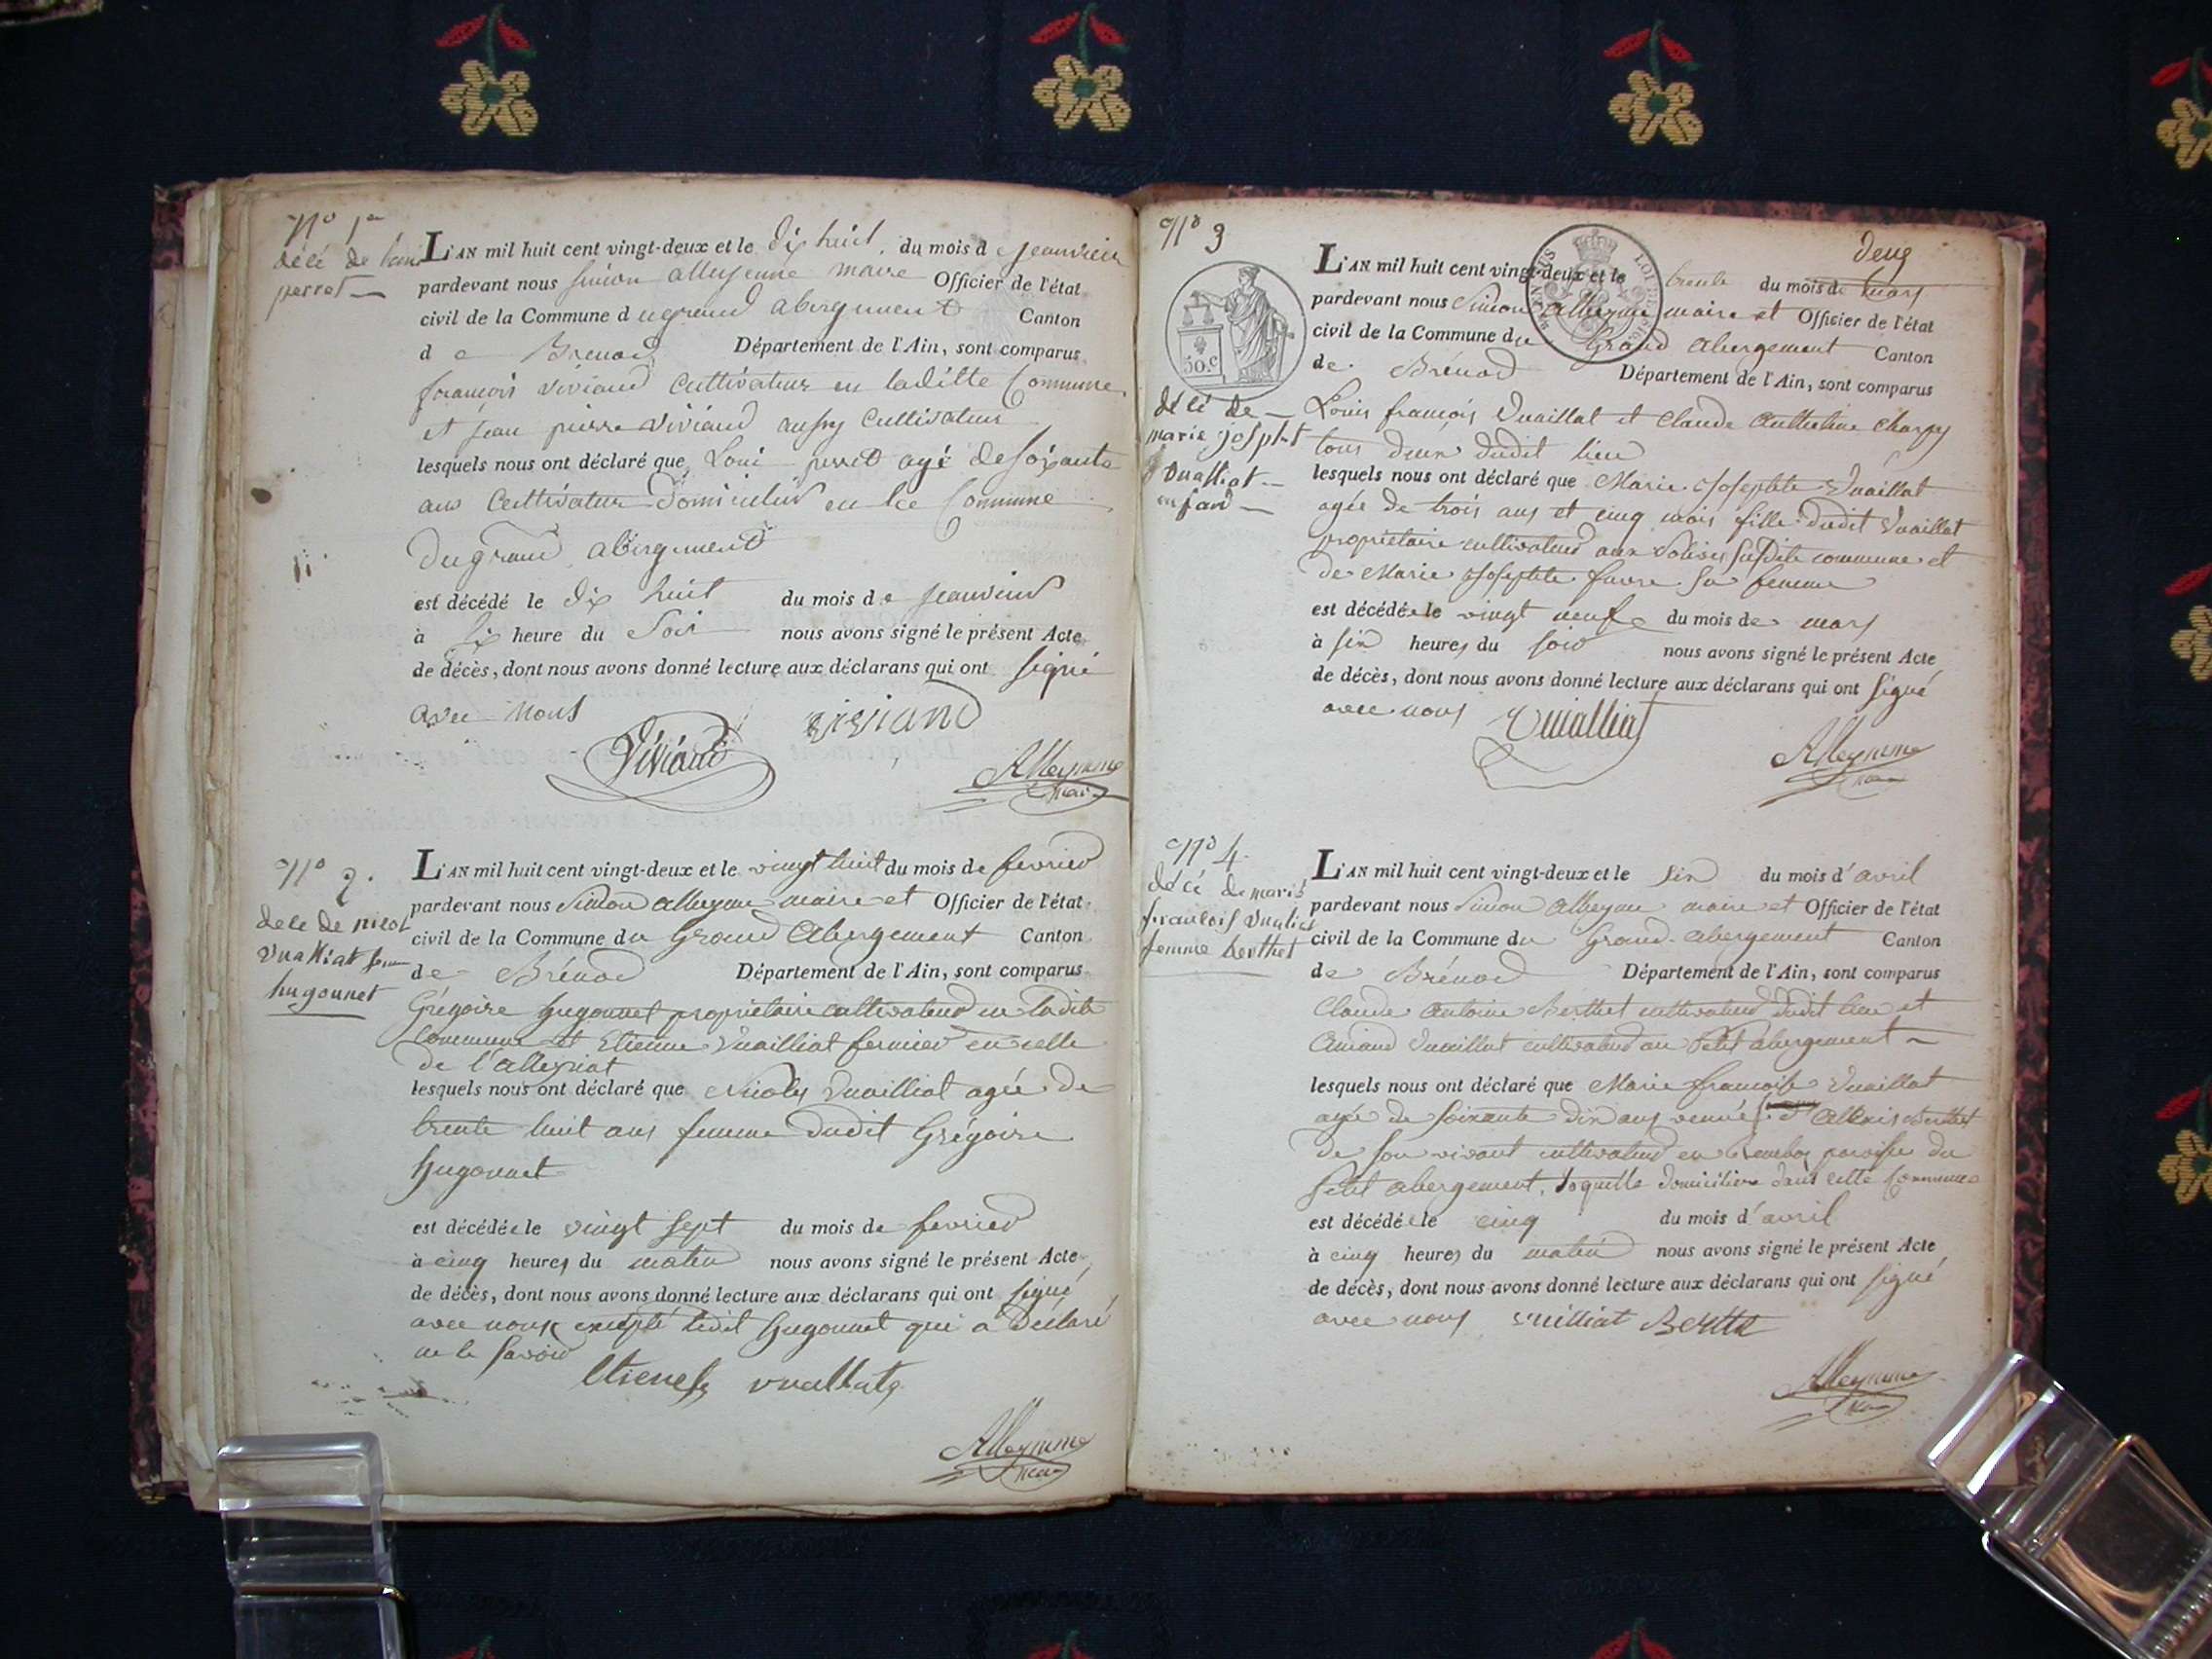 N° 1er
décé de loui
perret
L'AN mil huit cent vingt-deux et le dix huit du mois de jeanvier
pardevant nous simon alleyenne maire Officier de l'état
civil de la Commune du grand abergement Canton
de Brenod Département de l'Ain, sont comparus
françois viviand Cultivateur en laditte Commune
et jean pierre viviand aussy Cultivateur
lesquels nous ont déclaré que Loui perret agé de soixante
ans Cultivateur domicilié en la Commune
du grand abergement
est décédé le dix huit du mois de jeanvier
à heure du Soir nous avons signé le présent Acte
de décès, dont nous avons donné lecture aux déclarans qui ont signé
avec nous
viviand
Viviand
Alleynme
N° 2.
décé de nicol
vualliat
hugonnet
L'AN mil huit cent vingt-deux et le vingt huit du mois de fevrier
pardevant nous Simon alleyme maire et Officier de l'état
civil de la Commune du Grand Abergement Canton
de Brénod Département de l'Ain, sont comparus
Grégoire hugonnet propriétaire cultivateur en ladite
Commune et Etienne Vuailliat fermier en celle
de l'alleyriat
lesquels nous ont déclaré que Nicoly Vuailliat agée de
trente huit ans femme dudit Grégoire
hugonnet
est décédée le vingt sept du mois de fevrier
à cinq heures du matin nous avons signé le présent Acte
de décès, dont nous avons donné lecture aux déclarans qui ont signé
avec nous excepté ledit hugonnet qui a déclaré
ne le savoir
Alleynme
N° 3
deux
50.C
décé de
marie josph-t
vualliat
enfand
L'AN mil huit cent vingt-deux et le trente du mois de mars
pardevant nous Simon alleyme maire et Officier de l'état
civil de la Commune du Grand abergement Canton
de Brénod Département de l'Ain, sont comparus
Louis françois Vuaillat et Claude Charpy
tous deux dudit lieu
lesquels nous ont déclaré que Marie Josephte Vuaillat
agée de trois ans et cinq mois fille dudit Vuaillat
propriétaire cultivateur aux susdite commune et
de Marie Josephte favre sa femme
est décédée le vingt neuf du mois de mars
à six heures du soir nous avons signé le présent Acte
de décès, dont nous avons donné lecture aux déclarans qui ont signé
avec nous
Vuialliat
Alleynme
N° 4.
décé de marie
francois
femme berthet
L'AN mil huit cent vingt-deux et le six du mois d'avril
pardevant nous Simon alleyme maire et Officier de l'état
civil de la Commune du Grand abergement Canton
de Brénod Département de l'Ain, sont comparus
Claude Antoine Berthet cultivateur dudit lieu et
Vuaillat cultivateur au Petit abergement
lesquels nous ont déclaré que Marie françoise Vuaillat
agée de soixante dix ans veuve d'Alexis Berthet
de son vivant cultivateur en paroisse du
petit abergement, laquelle domiciliée dans cette commune
est décédée le cinq du mois d'avril
à cinq heures du matin nous avons signé le présent Acte
de décès, dont nous avons donné lecture aux déclarans qui ont signé
avec nous vuilliat
Alleynme